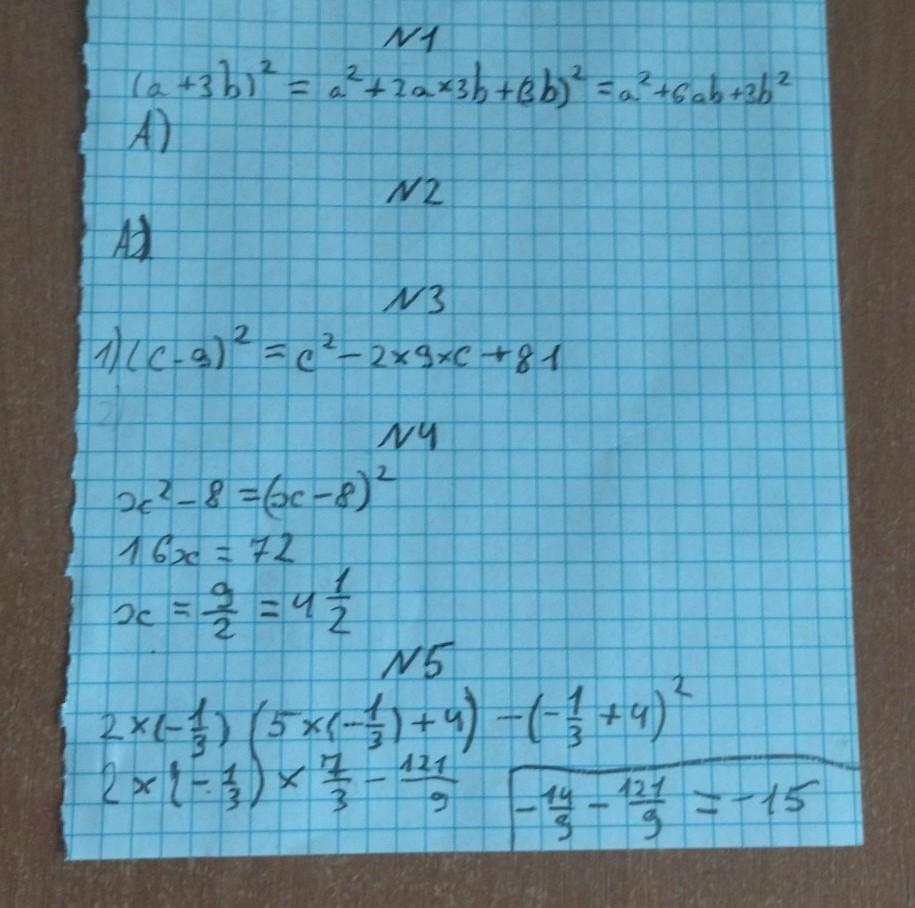 N1
(a+3b)² = a²+2a×3b+(3b)² = a²+6ab+3b²
A)
N2
A)
N3
1) (c-9)² = c²-2×9×c+81
N4
x²-8=(x-8)²
16x=72
x = 9/2 = 4 1/2
N5
2×(-1/3) (5×(-1/3)+4) -(-1/3+4)²
2×(-1/3)× 7/3 - 121/9
-14/9 - 121/9 = -15